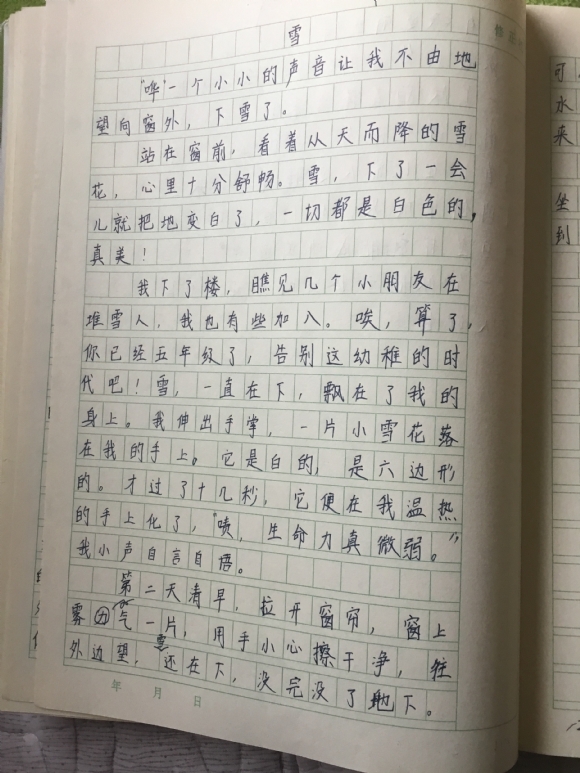 雪
“哗”一个小小的声音让我不由地
望向窗外，下雪了。
站在窗前，看着从天而降的雪
花，心里十分舒畅。雪，下了一会
儿就把地变白了，一切都是白色的，
真美！
我下了楼，瞧见几个小朋友在
堆雪人，我也有些加入。唉，算了，
你已经五年级了，告别这幼稚的时
代吧！雪，一直在下，飘在了我的
身上。我伸出手掌，一片小雪花落
在我的手上。它是白的，是六边形
的。才过了十几秒，它便在我温热
的手上化了，“啧，生命力真微弱。”
我小声自言自语。
第二天清早，拉开窗帘，窗上
雾气一片，用手小心擦干净，往
外边望，雪还在下，没完没了地下。
年 月 日
可
水
来
坐
到